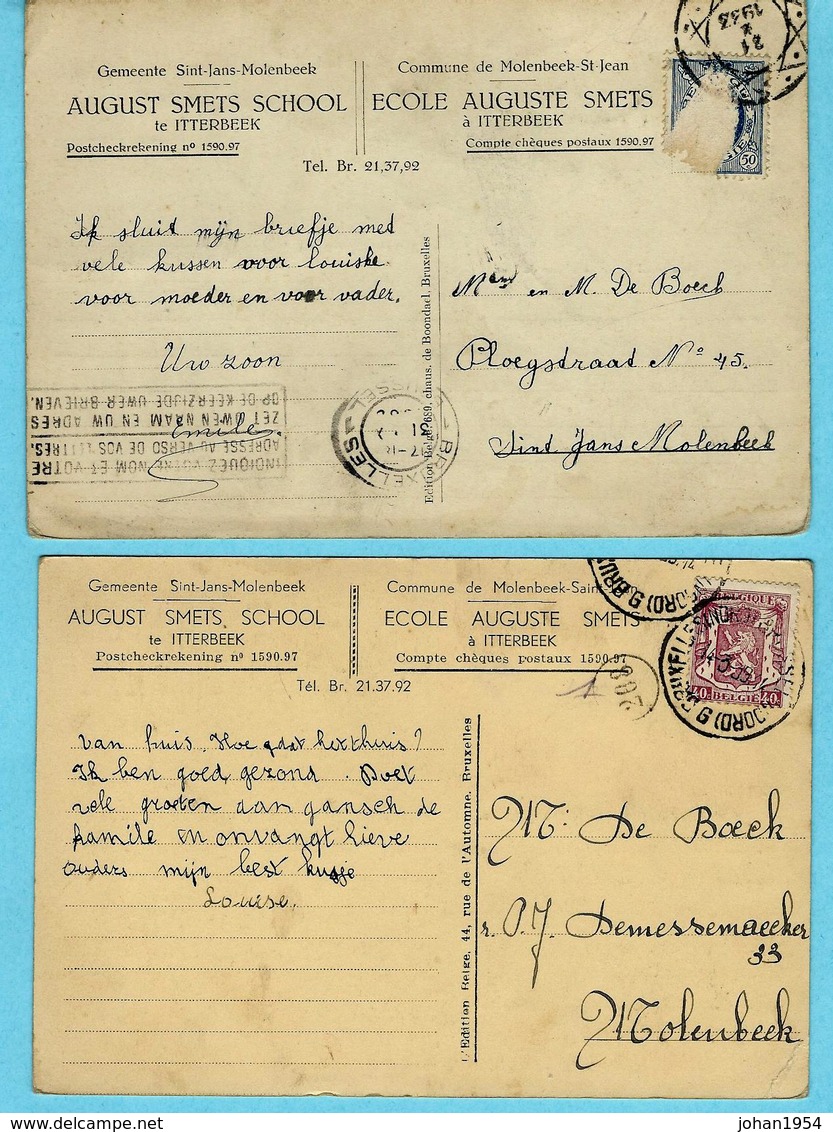 Gemeente Sint-Jans-Molenbeek
AUGUST SMETS SCHOOL
te ITTERBEEK
Postcheckrekening nº 1590.97
Commune de Molenbeek-St-Jean
ECOLE AUGUSTE SMETS
à ITTERBEEK
Compte chèques postaux 1590.97
Tel. Br. 21,37,92
21
1933
50
Ik sluit mijn briefje met
vele kussen voor louiske
voor moeder en voor vader.
Uw zoon
Emile.
INDIQUEZ VOTRE NOM ET VOTRE
ADRESSE AU VERSO DE VOS LETTRES.
ZET UWEN NAAM EN UW ADRES
OP DE KEERZIJDE UWER BRIEVEN.
BRUXELLES 1
Edition Belge, 689, chaus. de Boondael, Bruxelles
en M. De Boeck
Ploegstraat Nº 45.
Sint Jans Molenbeek
Gemeente Sint-Jans-Molenbeek
AUGUST SMETS SCHOOL
te ITTERBEEK
Postcheckrekening nº 1590.97
Commune de Molenbeek-Saint
ECOLE AUGUSTE SMETS
à ITTERBEEK
Compte chèques postaux 1590.97
Tél. Br. 21.37.92
208
BELGIQUE
40 BELGIE 40
van huis. Hoe gdat het thuis?
Ik ben goed gezond. Doet
vele groeten aan gansch de
familie en onvangt lieve
ouders mijn best kusje
Louise.
L'Edition Belge, 44, rue de l'Automne, Bruxelles
Mr De Boeck
r. P.J. Demessemaeker
33
Molenbeek
johan1954